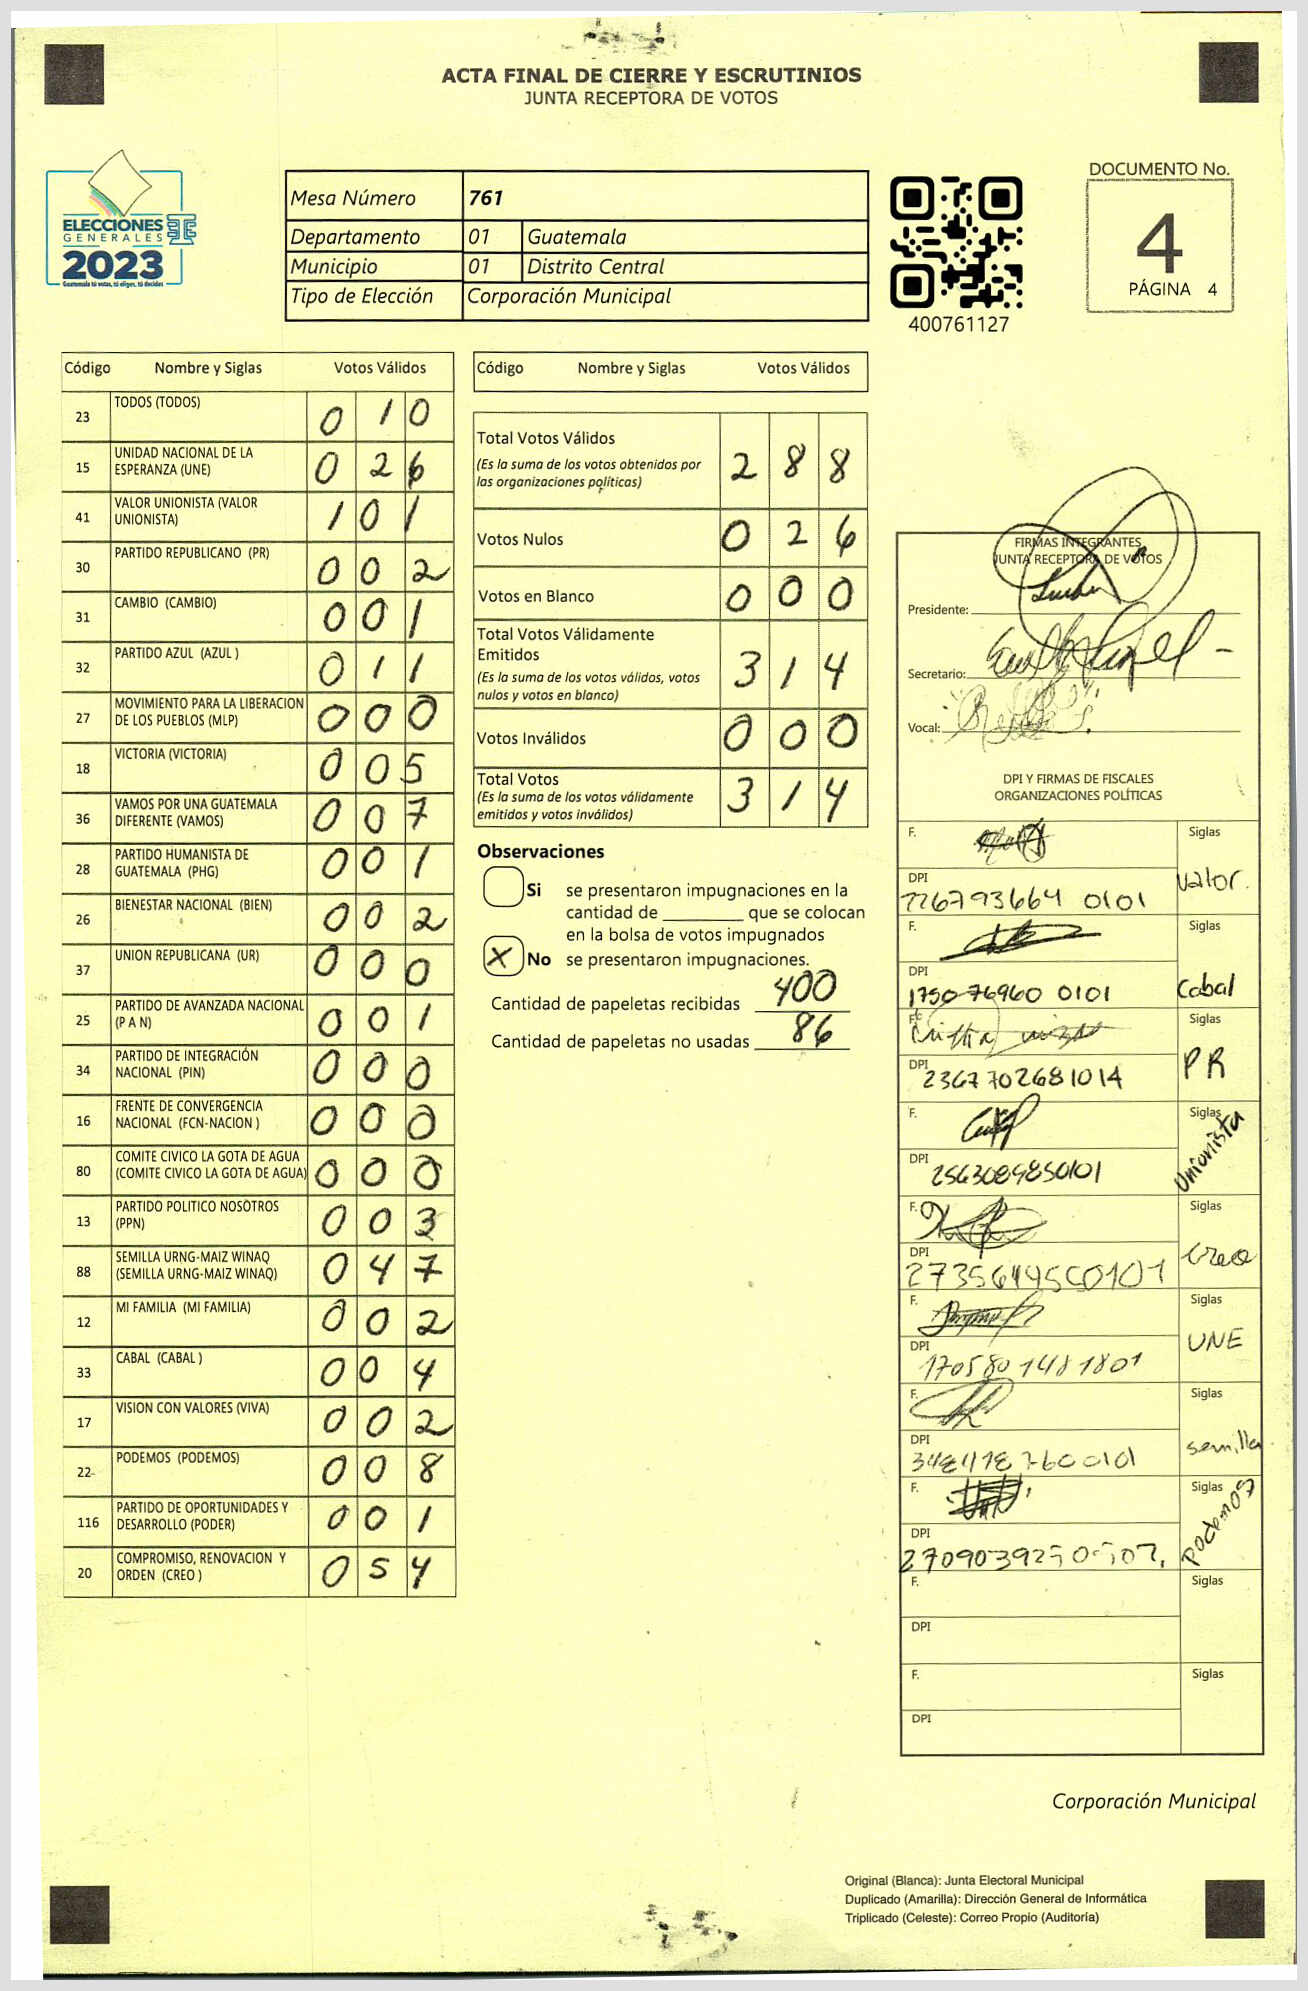 ACTA FINAL DE CIERRE Y ESCRUTINIOS
JUNTA RECEPTORA DE VOTOS
ELECCIONES
GENERALES
2023
Guatemala tú votas, tú eliges, tú decides
Mesa Número 761
Departamento 01 Guatemala
Municipio 01 Distrito Central
Tipo de Elección Corporación Municipal
400761127
DOCUMENTO No.
4
PÁGINA 4
Código Nombre y Siglas Votos Válidos
23 TODOS (TODOS) 0 1 0
15 UNIDAD NACIONAL DE LA ESPERANZA (UNE) 0 2 6
41 VALOR UNIONISTA (VALOR UNIONISTA) 1 0 1
30 PARTIDO REPUBLICANO (PR) 0 0 2
31 CAMBIO (CAMBIO) 0 0 1
32 PARTIDO AZUL (AZUL ) 0 1 1
27 MOVIMIENTO PARA LA LIBERACION DE LOS PUEBLOS (MLP) 0 0 0
18 VICTORIA (VICTORIA) 0 0 5
36 VAMOS POR UNA GUATEMALA DIFERENTE (VAMOS) 0 0 7
28 PARTIDO HUMANISTA DE GUATEMALA (PHG) 0 0 1
26 BIENESTAR NACIONAL (BIEN) 0 0 2
37 UNION REPUBLICANA (UR) 0 0 0
25 PARTIDO DE AVANZADA NACIONAL (P A N) 0 0 1
34 PARTIDO DE INTEGRACIÓN NACIONAL (PIN) 0 0 0
16 FRENTE DE CONVERGENCIA NACIONAL (FCN-NACION ) 0 0 0
80 COMITE CIVICO LA GOTA DE AGUA (COMITE CIVICO LA GOTA DE AGUA) 0 0 0
13 PARTIDO POLITICO NOSOTROS (PPN) 0 0 3
88 SEMILLA URNG-MAIZ WINAQ (SEMILLA URNG-MAIZ WINAQ) 0 4 7
12 MI FAMILIA (MI FAMILIA) 0 0 2
33 CABAL (CABAL ) 0 0 4
17 VISION CON VALORES (VIVA) 0 0 2
22 PODEMOS (PODEMOS) 0 0 8
116 PARTIDO DE OPORTUNIDADES Y DESARROLLO (PODER) 0 0 1
20 COMPROMISO, RENOVACION Y ORDEN (CREO ) 0 5 4
Código Nombre y Siglas Votos Válidos
Total Votos Válidos 2 8 8
(Es la suma de los votos obtenidos por
las organizaciones políticas)
Votos Nulos 0 2 6
Votos en Blanco 0 0 0
Total Votos Válidamente
Emitidos 3 1 4
(Es la suma de los votos válidos, votos
nulos y votos en blanco)
Votos Inválidos 0 0 0
Total Votos 3 1 4
(Es la suma de los votos válidamente
emitidos y votos inválidos)
Observaciones
Si se presentaron impugnaciones en la
cantidad de ________ que se colocan
en la bolsa de votos impugnados
X No se presentaron impugnaciones.
Cantidad de papeletas recibidas 400
Cantidad de papeletas no usadas 86
FIRMAS INTEGRANTES
JUNTA RECEPTORA DE VOTOS
Presidente:
Secretario:
Vocal:
DPI Y FIRMAS DE FISCALES
ORGANIZACIONES POLÍTICAS
F. Siglas
DPI Valor.
F. Siglas
DPI Cabal
1750 76960 0101
F. Siglas
DPI PR
2367702681014
F. Siglas
DPI Unionista
2563089850101
F. Siglas
DPI Creo
F. Siglas
DPI UNE
1705801481801
F. Siglas
DPI semilla
F. Siglas
DPI Podemos
F. Siglas
DPI
F. Siglas
DPI
Corporación Municipal
Original (Blanca): Junta Electoral Municipal
Duplicado (Amarilla): Dirección General de Informática
Triplicado (Celeste): Correo Propio (Auditoría)